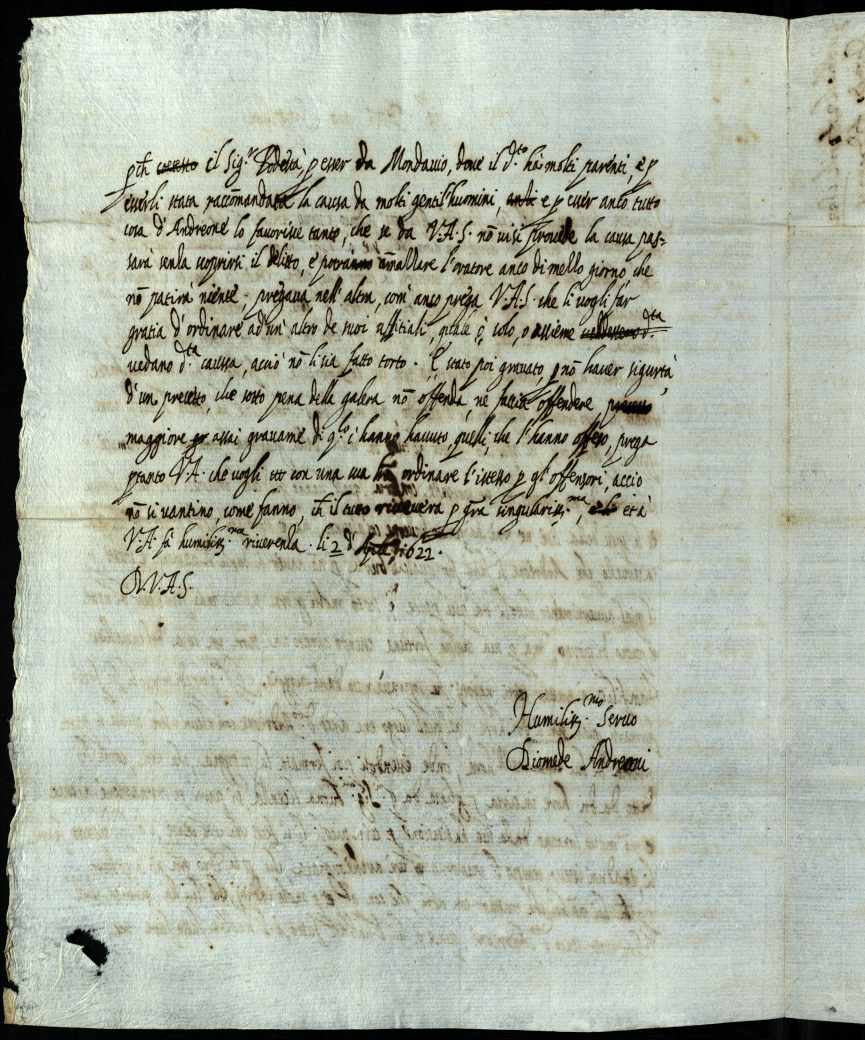 pch̃ il Sig.r Podestà, p esser da Mondavio, dove il d.to há molti parenti, e p
esserli stata raccomandata la causa da molti gentil'huomini, e p esser anco tutto
cosa d'Andreone lo favorisce tanto, che se da V.A.S. nõ vi si provede la causa pas-
sarà senza scoprirsi il delitto, e potranno ãmazzare l'oratore anco di mezzo giorno che
nõ patirà niente; pregava nell'altra, com'anco prega V.A.S. che li vogli far
gratia d'ordinare ad un'altro de suoi uffitiali, quale ò solo, o assieme d.ta
vedano d.ta caussa, acciò nõ li sia fatto torto. E stato poi gravato, p nõ haver sigurtà
d'un precetto, che sotto pena della galera nõ offenda, ne faccia offendere,
maggiore assai gravame di q.lo ch'hanno havuto quelli, che l'hanno offeso, prega
ptanto V.A. che vogli con una sua ordinare l'istesso p gl'offensori, acciò
nõ si vantino, come fanno, ch̃ il tutto riceverà p grã singulariss.ma, et à
V.A. fà humiliss.ma riverenza. li 2 d' 1622.
D.V.A.S.
Humiliss.mo Servo
Diomede Andreoni